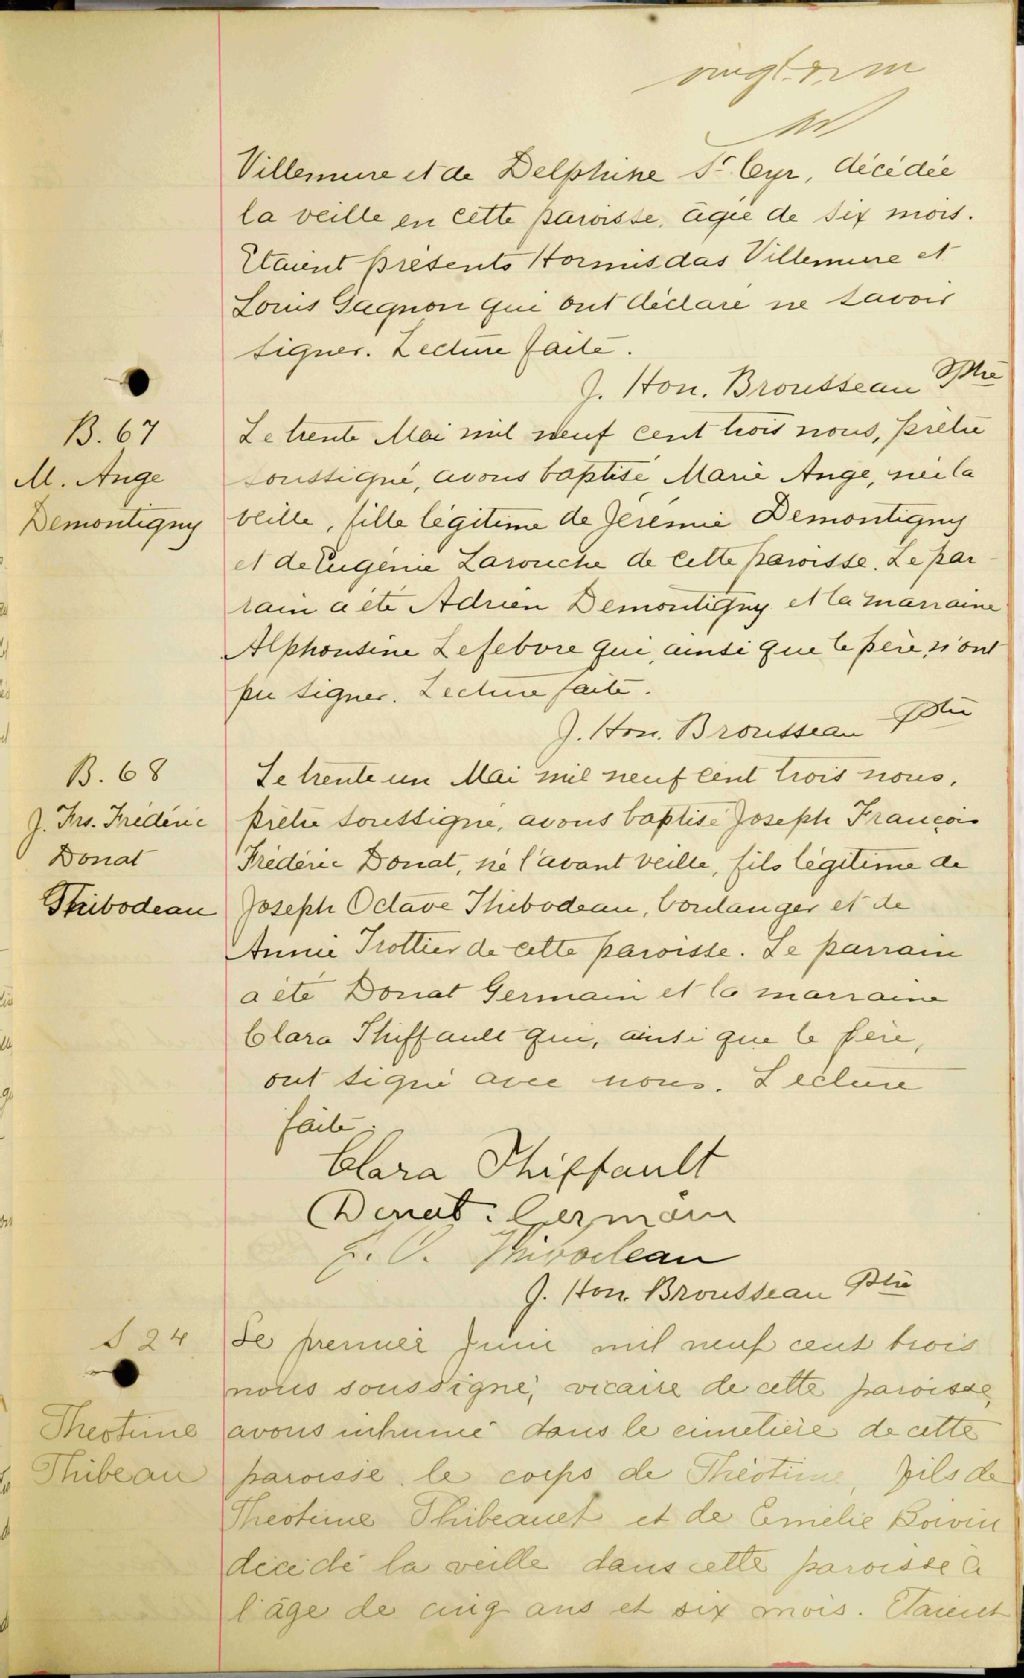 Villemure et de Delphine St Cyr, décédée
la veille en cette paroisse, âgée de six mois.
Etaient présents Hormisdas Villemure et
Louis Gagnon qui ont déclaré ne savoir
signer. Lecture faite.
J. Hon. Brousseau Ptre
B. 67
M. Ange
Demontigny
Le trente Mai mil neuf cent trois nous, prêtre
soussigné, avons baptisé Marie Ange, née la
veille, fille légitime de Jérémie Demontigny
et de Eugénie Larouche de cette paroisse. Le par-
rain a été Adrien Demontigny et la marraine
Alphonsine Lefebvre qui, ainsi que le père, n'ont
pu signer. Lecture faite.
J. Hon. Brousseau Ptre
B. 68
J. Frs. Frédéric
Donat
Thibodeau
Le trente un Mai mil neuf cent trois nous,
prêtre soussigné, avons baptisé Joseph François
Frédéric Donat, né l'avant veille, fils légitime de
Joseph Octave Thibodeau, boulanger et de
Annie Trottier de cette paroisse. Le parrain
a été Donat Germain et la marraine
Clara Thiffault qui, ainsi que le père,
ont signé avec nous. Lecture
faite.
Clara Thiffault
Donat. Germain
J. O. Thibodeau
J. Hon. Brousseau Ptre
S 24
Theotime
Thibeau
Le premier Juin mil neuf cent trois
nous soussigné, vicaire de cette paroisse,
avons inhumé dans le cimetière de cette
paroisse le corps de Théotime, fils de
Théotime Thibeault et de Emélie Boivin
décédé la veille dans cette paroisse à
l'âge de cinq ans et six mois. Etaient